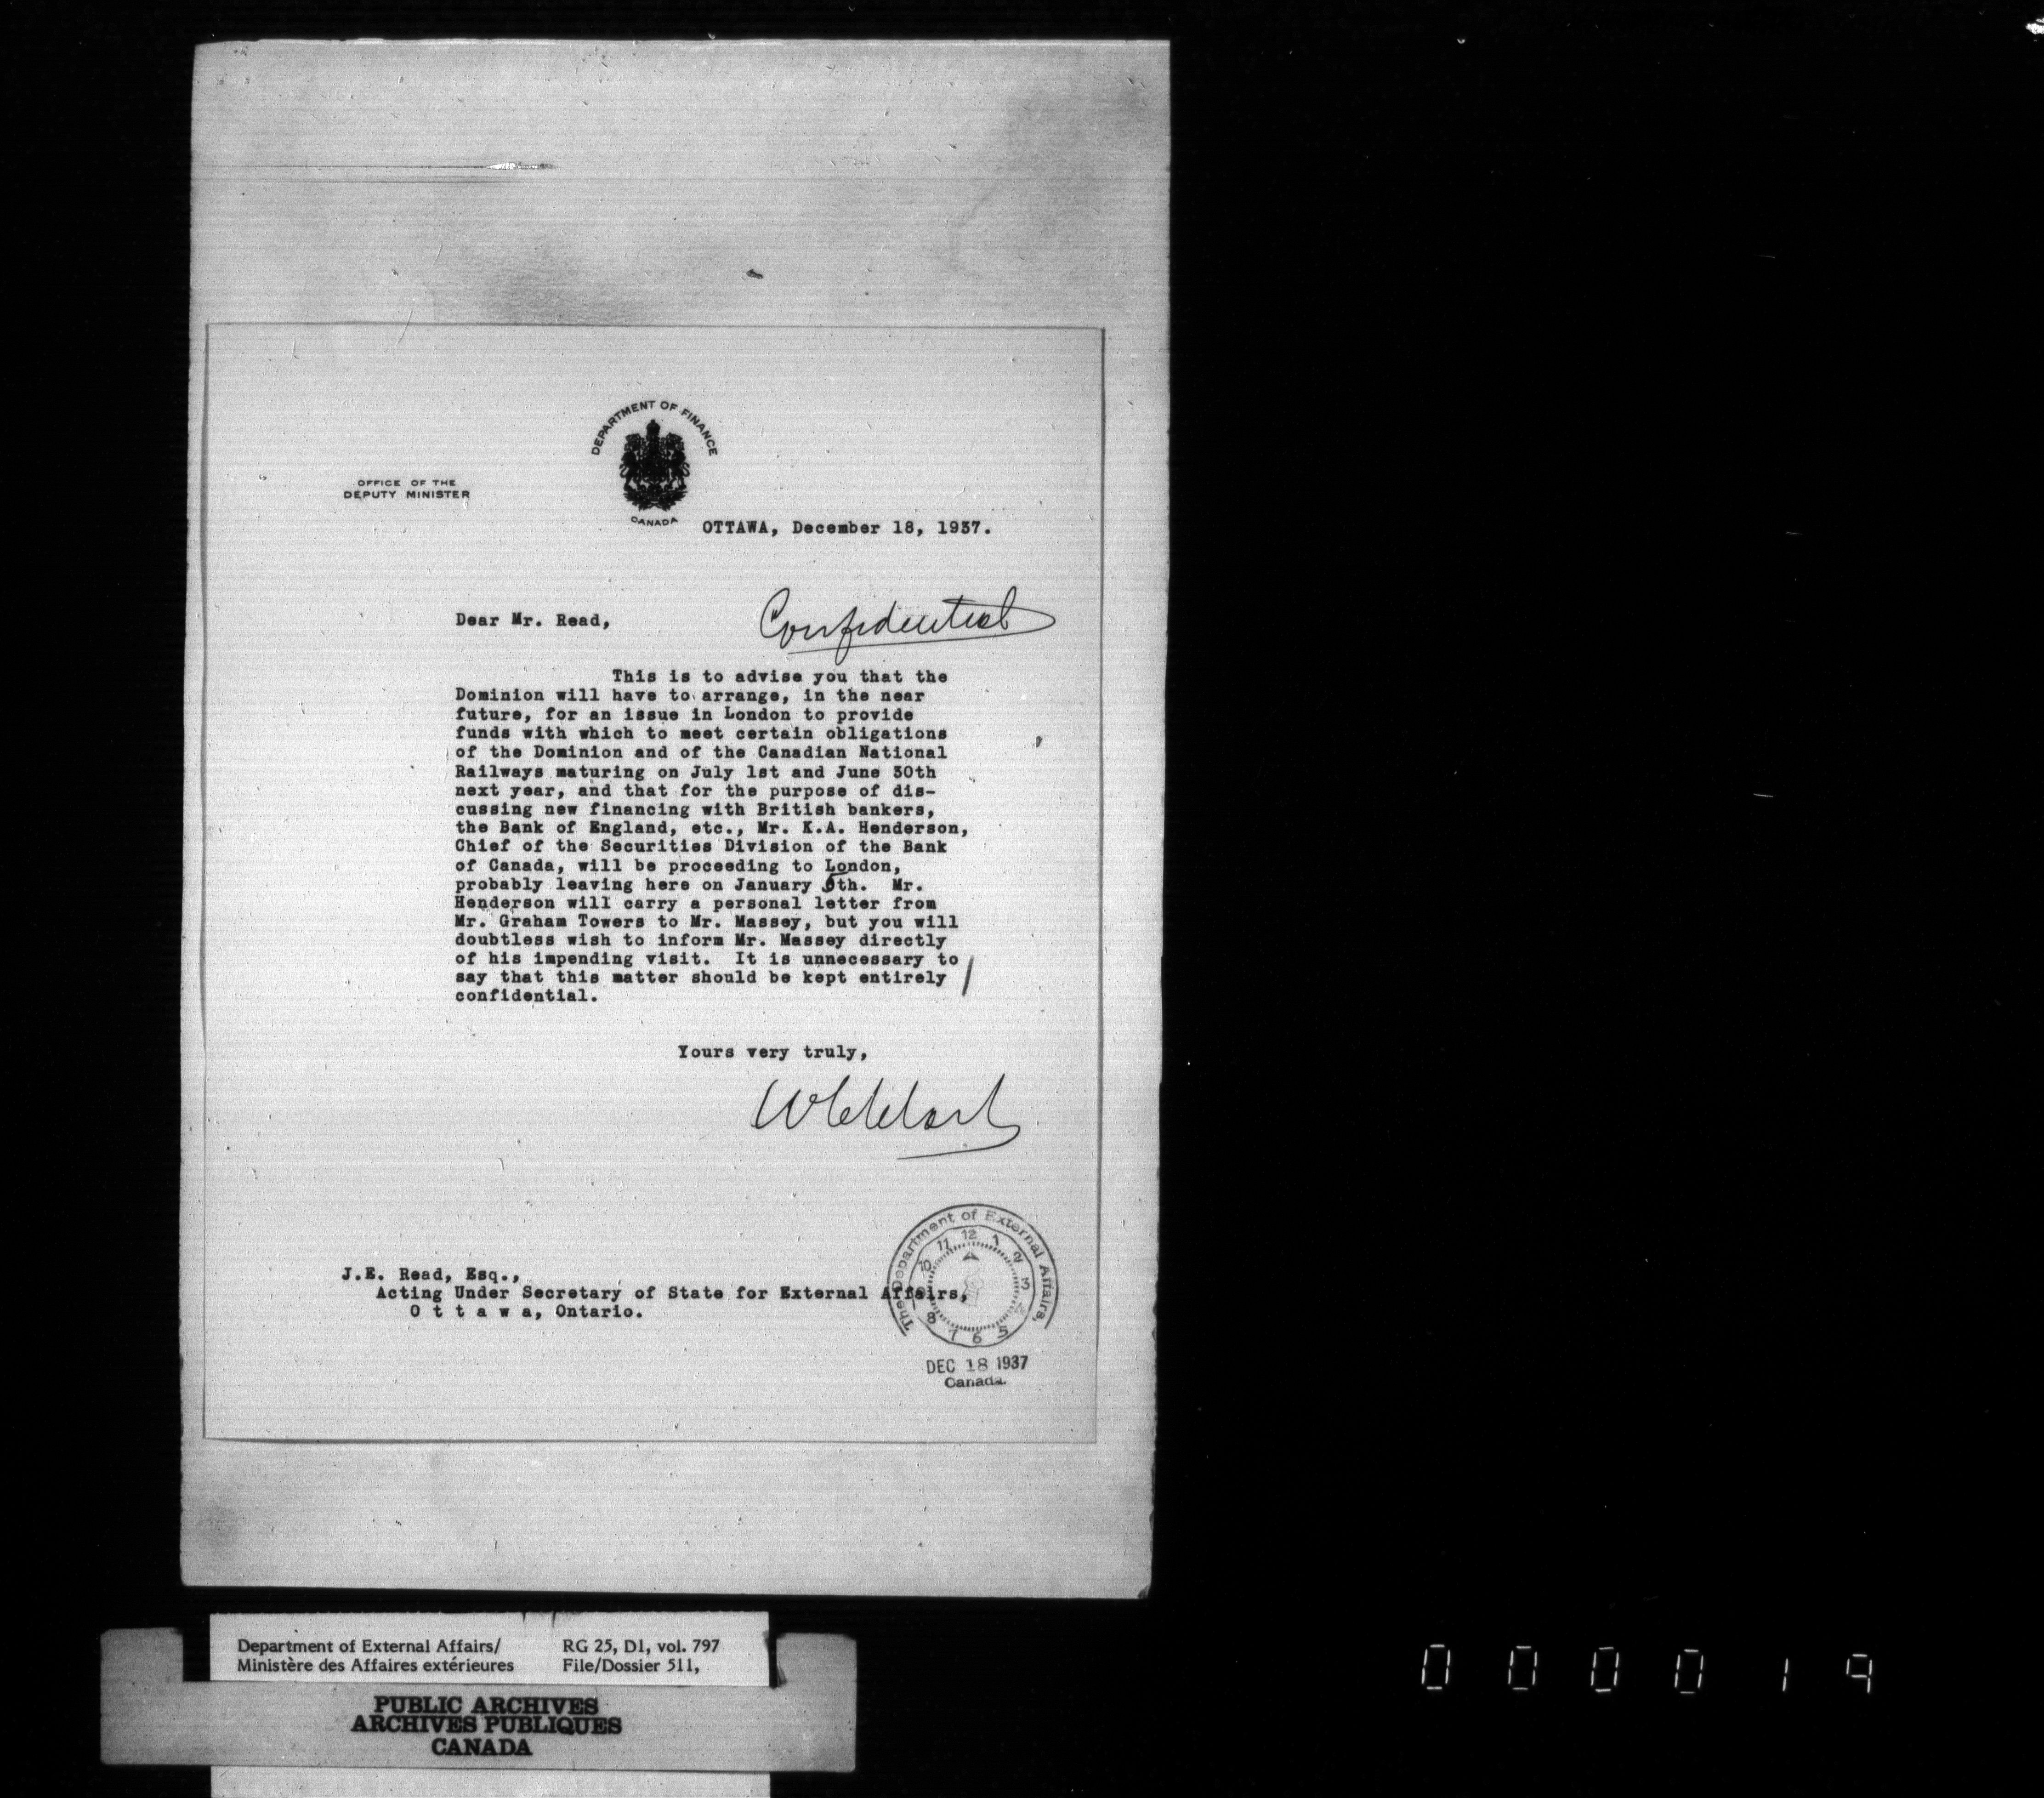 DEPARTMENT OF FINANCE
CANADA
OFFICE OF THE
DEPUTY MINISTER
OTTAWA, December 18, 1937.
Dear Mr. Read,
Confidential
This is to advise you that the
Dominion will have to arrange, in the near
future, for an issue in London to provide
funds with which to meet certain obligations
of the Dominion and of the Canadian National
Railways maturing on July 1st and June 30th
next year, and that for the purpose of dis-
cussing new financing with British bankers,
the Bank of England, etc., Mr. K.A. Henderson,
Chief of the Securities Division of the Bank
of Canada, will be proceeding to London,
probably leaving here on January 5th. Mr.
Henderson will carry a personal letter from
Mr. Graham Towers to Mr. Massey, but you will
doubtless wish to inform Mr. Massey directly
of his impending visit. It is unnecessary to
say that this matter should be kept entirely
confidential.
Yours very truly,
J.E. Read, Esq.,
Acting Under Secretary of State for External Affairs,
O t t a w a, Ontario.
The Department of External Affairs,
12 1 2 3 4 5 6 7 8 9 10 11
DEC 18 1937
Canada
Department of External Affairs/
Ministère des Affaires extérieures
RG 25, D1, vol. 797
File/Dossier 511,
PUBLIC ARCHIVES
ARCHIVES PUBLIQUES
CANADA
000019